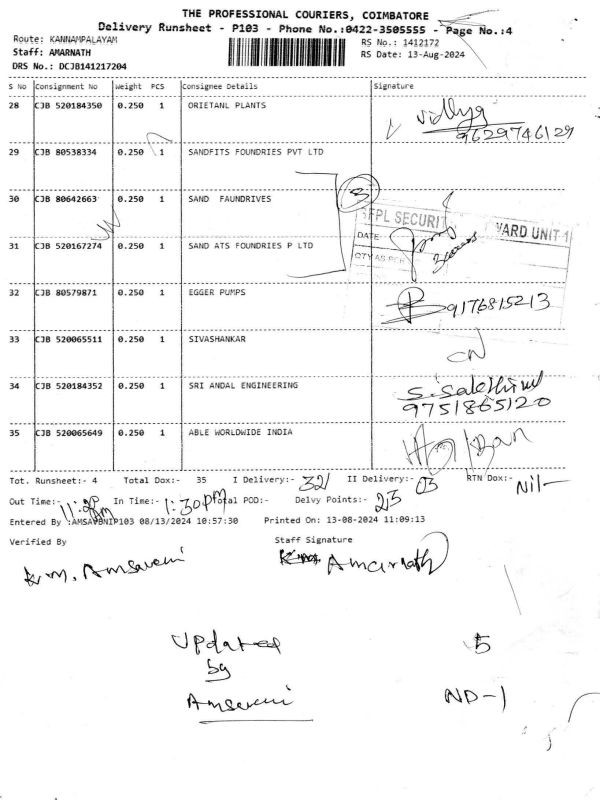 THE PROFESSIONAL COURIERS, COIMBATORE
Delivery Runsheet - P103 - Phone No.:0422-3505555 - Page No.:4
Route: KANNAMPALAYAM RS No.: 1412172
Staff: AMARNATH RS Date: 13-Aug-2024
DRS No.: DCJB141217204
S No Consignment No Weight PCS Consignee Details Signature
28 CJB 520184350 0.250 1 ORIETANL PLANTS Vidhya
9629746129
29 CJB 80538334 0.250 1 SANDFITS FOUNDRIES PVT LTD
30 CJB 80642663 0.250 1 SAND FAUNDRIVES 3
SFPL SECURIT WARD UNIT 1
DATE
31 CJB 520167274 0.250 1 SAND ATS FOUNDRIES P LTD
QTY AS PER
32 CJB 80579871 0.250 1 EGGER PUMPS 9176815213
33 CJB 520065511 0.250 1 SIVASHANKAR CN
34 CJB 520184352 0.250 1 SRI ANDAL ENGINEERING S. Sakthivel
9751865120
35 CJB 520065649 0.250 1 ABLE WORLDWIDE INDIA
Tot. Runsheet:- 4 Total Dox:- 35 I Delivery:- 32 II Delivery:- 03 RTN Dox:- Nil
Out Time:- In Time:- 1:30pm Total POD:- Delvy Points:- 23
Entered By :AMSAVENIP103 08/13/2024 10:57:30 Printed On: 13-08-2024 11:09:13
Verified By Staff Signature
K.M. Amsaveni Amarnath
Updated 5
by
Amsaveni ND-1